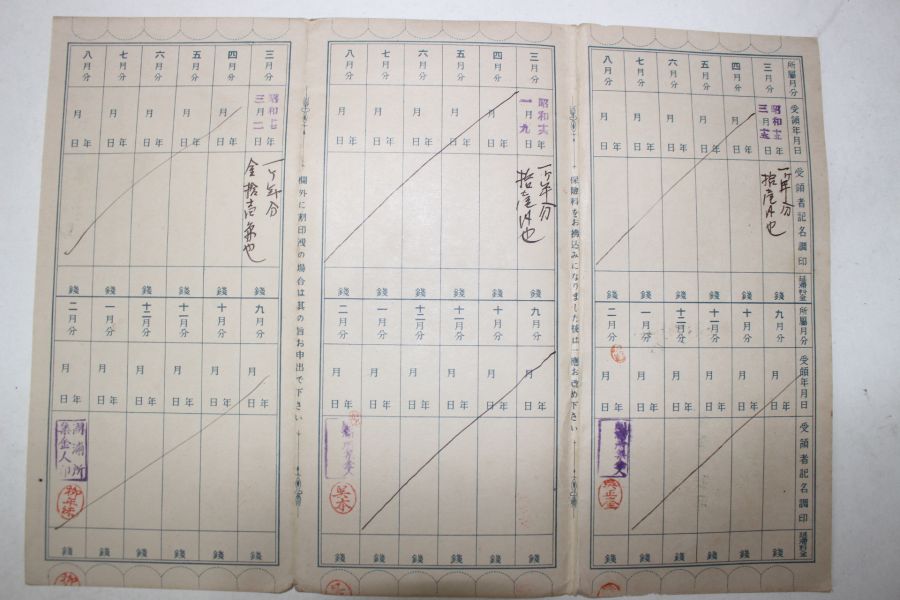 所屬月分
受領年月日
受領者記名調印
延滯料金
三月分
四月分
五月分
六月分
七月分
八月分
昭和
年
三月
日
月
日
月
日
月
日
月
日
月
日
一ヶ年分
錢
錢
錢
錢
錢
錢
所屬月分
受領年月日
受領者記名調印
延滯料金
九月分
十月分
十一月分
十二月分
一月分
二月分
年
月
日
月
日
月
日
月
日
月
日
月
日
錢
錢
錢
錢
錢
錢
保險料をお拂込みになりました後は一應お改め下さい
三月分
四月分
五月分
六月分
七月分
八月分
昭和
年
一月九日
月
日
月
日
月
日
月
日
月
日
一ヶ年分
錢
錢
錢
錢
錢
錢
九月分
十月分
十一月分
十二月分
一月分
二月分
年
月
日
月
日
月
日
月
日
月
日
月
日
錢
錢
錢
錢
錢
錢
欄外に割印洩の場合は其の旨お申出で下さい
三月分
四月分
五月分
六月分
七月分
八月分
昭和
年
三月二日
月
日
月
日
月
日
月
日
月
日
一ヶ年分
錢
錢
錢
錢
錢
錢
九月分
十月分
十一月分
十二月分
一月分
二月分
年
月
日
月
日
月
日
月
日
月
日
月
日
集金人印
錢
錢
錢
錢
錢
錢